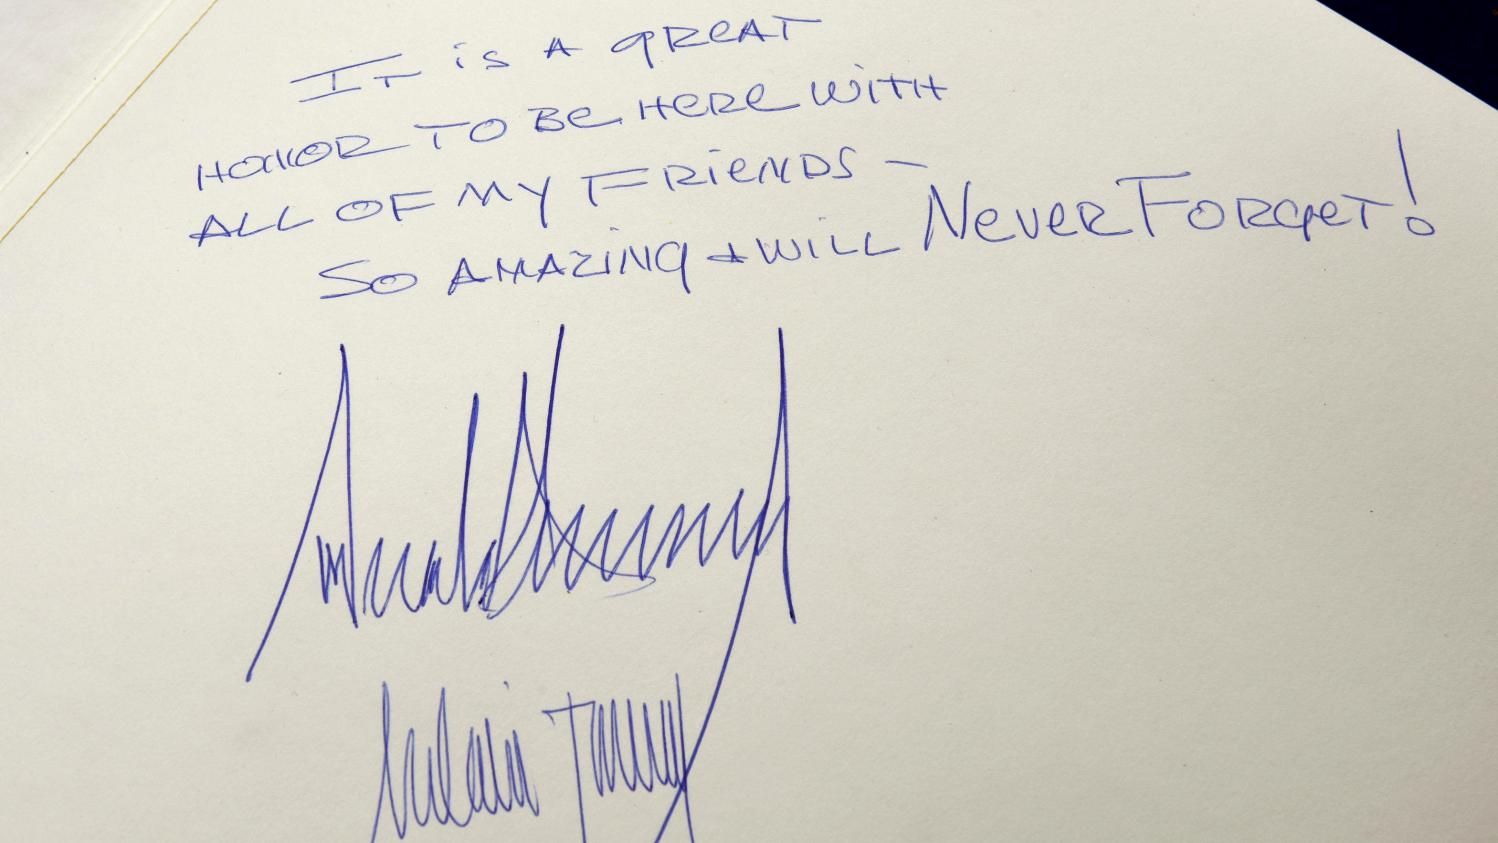 IT is A GReAT
HONOR TO Be HeRe WITH
ALL OF MY FRieNDS –
SO AMAZiNG + WiLL NeveR FORGeT!
Donald Trump
Melania Trump